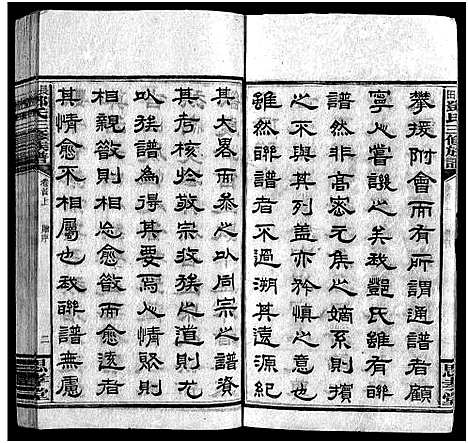 攀援附會而有所謂通譜者顧
寧人嘗譏之矣我鄧氏雖有聯
譜然非高密元侯之嫡系則擯
之不與其列蓋亦矜慎之意也
雖然聯譜者不過溯其遠源紀
其大畧而碁之以同宗之譜資
其考核於敬宗收族之道則不
以族譜為得其要焉人情聚則
相親散則相忘愈散而愈遠者
其情愈不相屬也我聯譜無慮
鄧氏三修族譜
思孝堂
卷首上
二